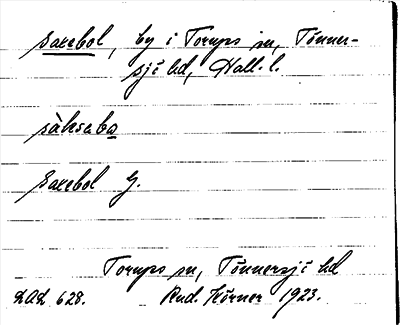 Saxebol, by i Torups sn, Tönner-
sjö hd, Hall. l.
sàksabo
Saxebol G.
Torups sn, Tönnersjö hd
DAL 628. Rud. Körner 1923.